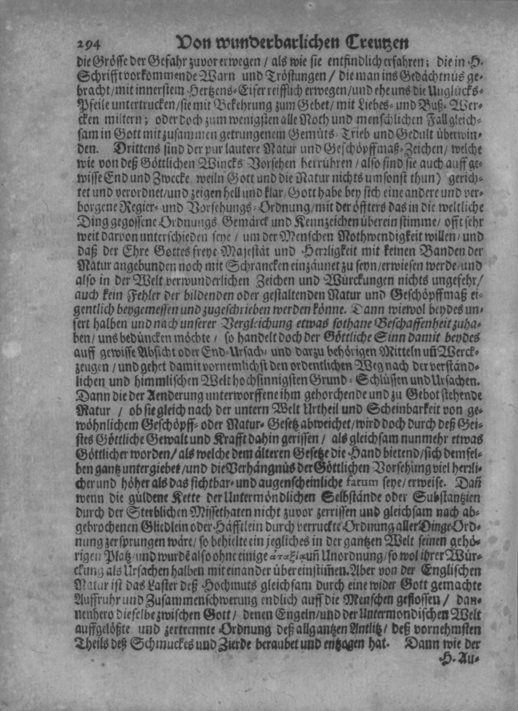 294 Von wunderbarlichen Creutzen
die Grösse der Gefahr zuvor erwegen / als wie sie entfindlich erfahren; die in H.
Schrifft vorkommende Warn und Tröstungen / die man ins Gedächtnüs ge-
bracht / mit innerstem Hertzens-Eifer reifflich erwegen / und ehe uns die Unglücks-
Pfeile untertrucken / sie mit Bekehrung zum Gebet / mit Liebes- und Buß-Wer-
cken miltern; oder doch zum wenigsten alle Noth und menschlichen Fall gleich-
sam in Gott mit zusammen getrungenem Gemüts-Trieb und Gedult überwin-
den. Drittens sind der pur lautere Natur und Geschöpffmaß-Zeichen / welche
wie von deß Göttlichen Wincks Vorsehen herrühren / also sind sie auch auff ge-
wisse End und Zwecke (weiln Gott und die Natur nichts umsonst thun) gerich-
tet und verordnet / und zeigen hell und klar / Gott habe bey sich eine andere und ver-
borgene Regier- und Vorsehungs-Ordnung / mit der öffters das in die weltliche
Ding gegossene Ordnungs Gemärck und Kennzeichen überein stimme / offt sehr
weit darvon unterschieden seye / um der Menschen Nothwendigkeit willen / und
daß der Ehre Gottes freye Majestät und Herligkeit mit keinen Banden der
Natur angebunden noch mit Schrancken einzäunet zu seyn / erwiesen werde / und
also in der Welt verwunderlichen Zeichen und Würckungen nichts ungefehr /
auch kein Fehler der bildenden oder gestaltenden Natur und Geschöpffmaß ei-
gentlich beygemessen und zugeschrieben werden könne. Dann wiewol beydes un-
sert halben und nach unserer Vergleichung etwas sothane Beschaffenheit zuha-
ben / uns bedüncken möchte / so handelt doch der Göttliche Sinn damit beydes
auff gewisse Absicht oder End-Ursach / und darzu behörigen Mitteln uñ Werck-
zeugen / und gehet damit vornemlichst den ordentlichen Weg nach der verständ-
lichen und himmlischen Welt hochsinnigsten Grund-Schlüssen und Ursachen.
Dann die der Aenderung unterworffene ihm gehorchende und zu Gebot stehende
Natur / ob sie gleich nach der untern Welt Urtheil und Scheinbarkeit von ge-
wöhnlichem Geschöpff- oder Natur-Gesetz abweichet / wird doch durch deß Gei-
stes Göttliche Gewalt und Krafft dahin gerissen / als gleichsam nunmehr etwas
Göttlicher worden / als welche dem älteren Gesetze die Hand bietend / sich demsel-
ben gantz untergiebet / und die Verhängnüs der Göttlichen Vorsehung viel herrli-
cher und höher als das sichtbar- und augenscheinliche fatum seye / erweise. Dañ
wenn die güldene Kette der Untermöndlichen Selbstände oder Substantzien
durch der Sterblichen Missethaten nicht zuvor zerrissen und gleichsam nach ab-
gebrochenen Gliedlein oder Häfftlein durch verruckte Ordnung aller Dinge Ord-
nung zersprungen wäre / so behielte ein jegliches in der gantzen Welt seinen gehö-
rigen Platz und wurde also ohne einige ἀταξία uñ Unordnung / so wol ihrer Wür-
ckung als Ursachen halben mit einander übereinstim̃en. Aber von der Englischen
Natur ist das Laster deß Hochmuts gleichsam durch eine wider Gott gemachte
Auffruhr und Zusammenschwerung endlich auff die Menschen geflossen / dan-
nenhero dieselbe zwischen Gott / denen Engeln / und der Untermondischen Welt
auffgelößte und zertrennte Ordnung deß allgantzen Antlitz / deß vornehmsten
Theils deß Schmuckes und Zierde beraubet und entzogen hat. Dann wie der
H. Au-